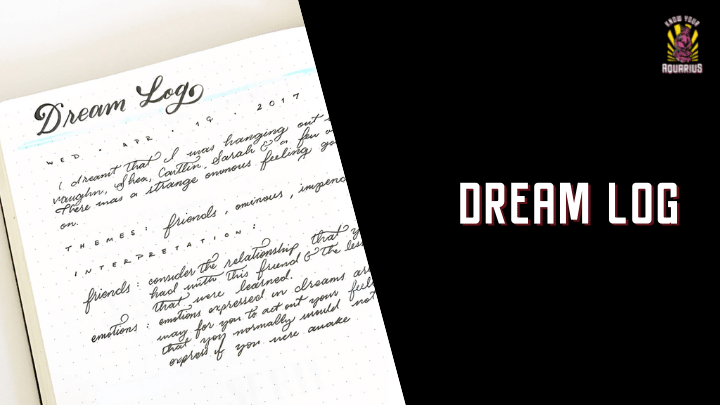 Dream Log
WED · APR · 19 · 2017
I dreamt that I was hanging out
vaughn, Shea, Caitlin, Sarah & a few
There was a strange ominous feeling
on.
THEMES: friends, ominous,
INTERPRETATION:
friends: consider the relationship that
had with this friend & the
that were learned.
emotions: emotions expressed in dreams
may for you to act out your
that you normally would not
express if you were awake
KNOW YOUR
AQUARIUS
DREAM LOG